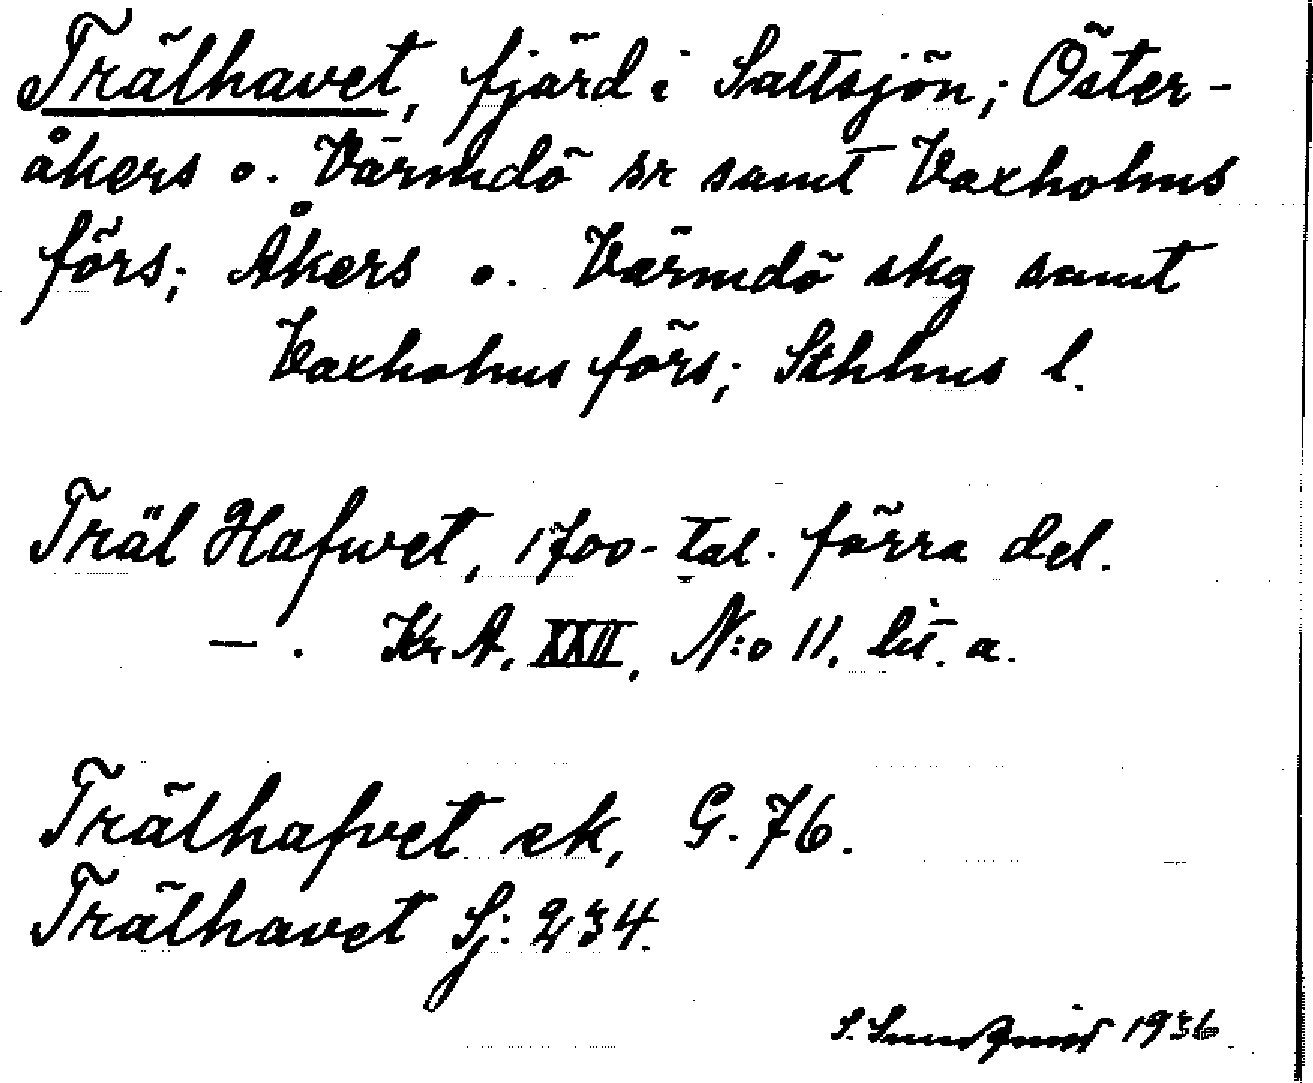 Trälhavet, fjärd i Saltsjön; Öster-
åkers o. Värmdö sr samt Vaxholms
förs; Åkers o. Värmdö skg samt
Vaxholms förs; Sthlms l.
Träl Hafwet, 1700-tal. förra del.
— . Kr A. XXII, N:o 11. lit. a.
Trälhafvet ek, G. 76.
Trälhavet Sj: 234.
S. Sundqvist 1936.